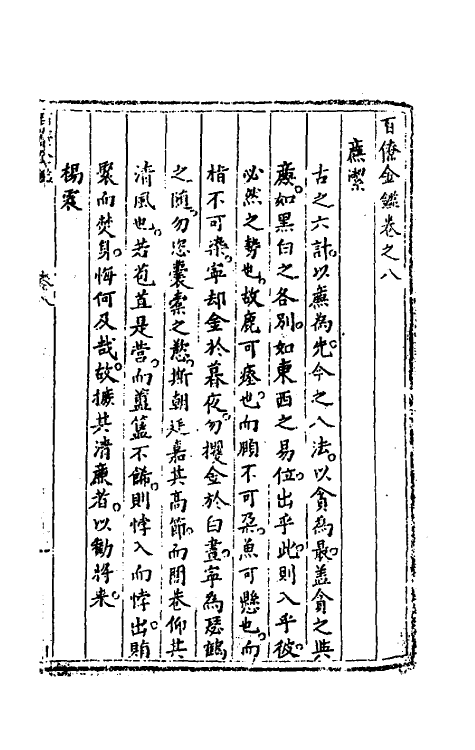 百僚金鑑卷之八
廉潔
古之六計以廉為先今之八法以貪為最蓋貪之與
廉如黑白之各別如東西之易位出乎此則入乎彼
必然之勢也故鹿可瘞也而頤不可朶魚可懸也而
指不可染寧却金於暮夜勿攫金於白晝寧為琴鶴
之随勿恣囊橐之慾斯朝廷嘉其高節而閭巷仰其
清風也若苞苴是營而簠簋不飾則悖入而悖出賄
聚而焚身悔何及哉故摭其清廉者以勸將来
楊震
卷八